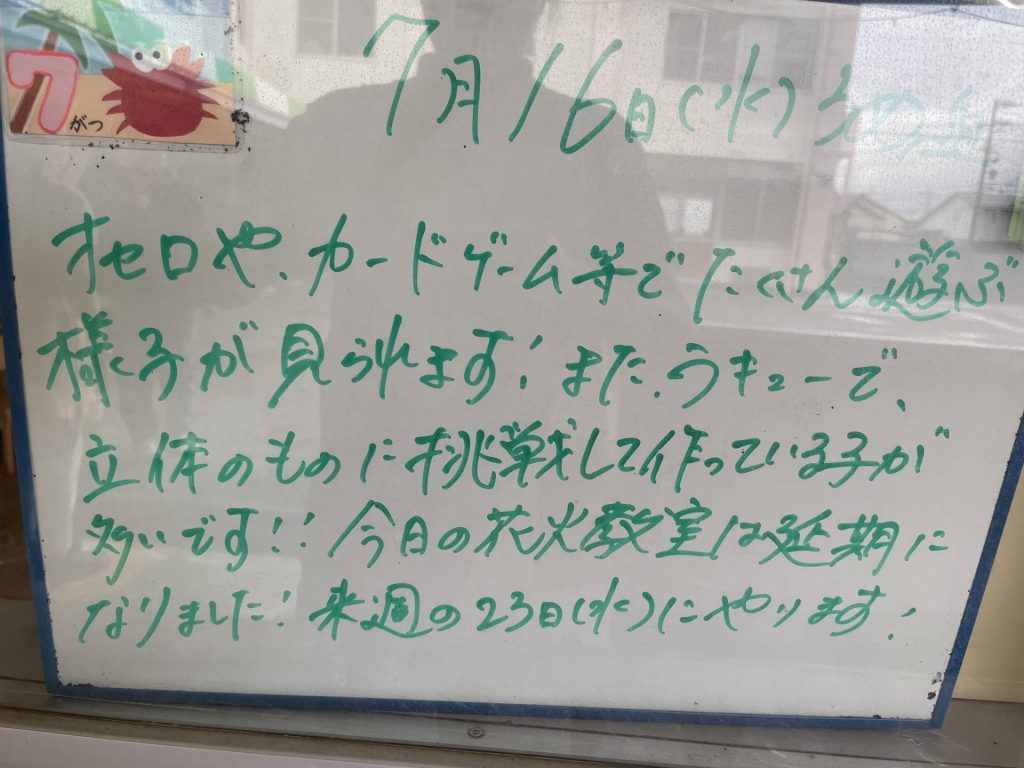 7がつ
7月16日(水)
オセロや、カードゲーム等でたくさん遊ぶ
様子が見られます!また、ラキューで、
立体のものに挑戦して作っている子が
多いです!!今日の花火教室は延期に
なりました!来週の23日(水)にやります!